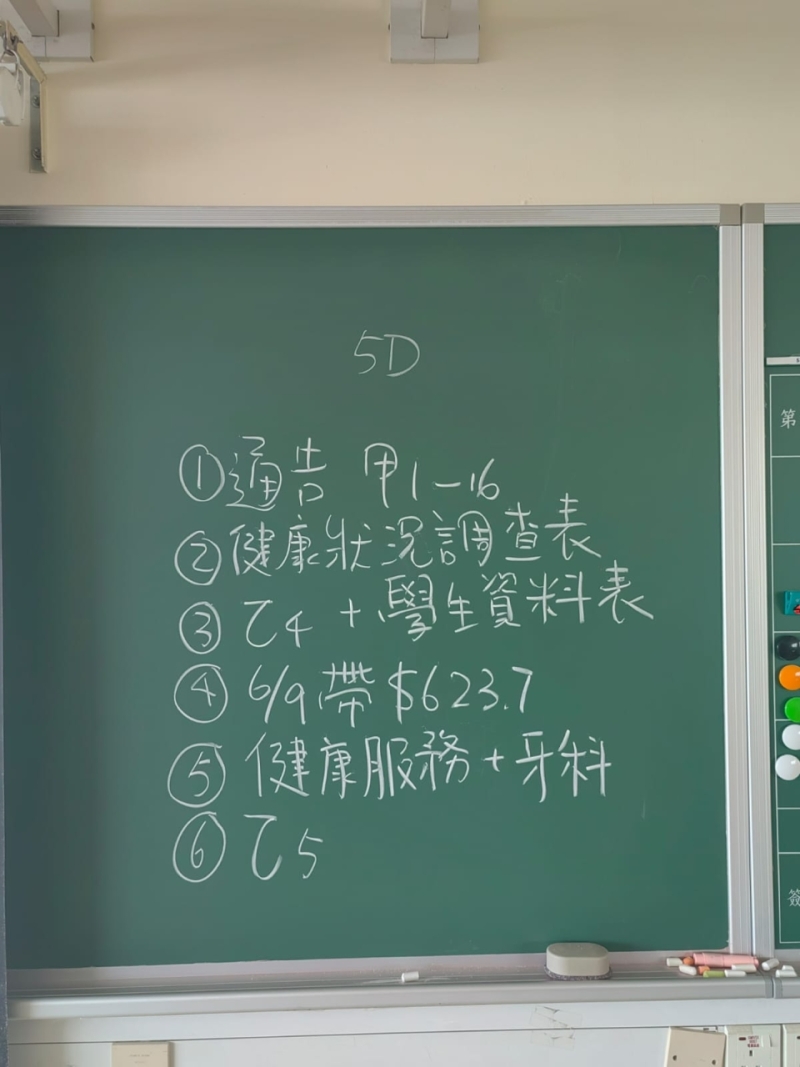 5D
①通告 甲1-16
②健康狀況調查表
③乙4 +學生資料表
④6/9帶$623.7
⑤健康服務+牙科
⑥乙5
第
簽